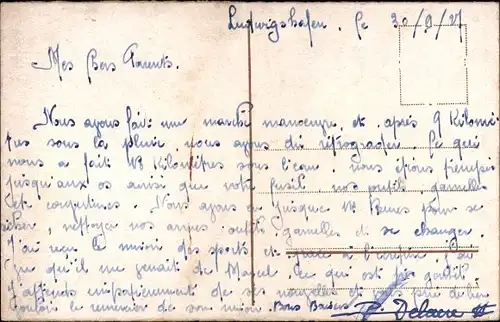 Ludwigshafen, le 30/9/27
Mes Chers Parents.
Nous avons fait une marche manoeuvre et après 9 Kilomè
tres sous la pluie nous avons dû rétrograder. Ce qui
nous a fait 18 Kilomètres sous l'eau. nous étions trempés
jusqu'aux os ainsi que notre fusil, nos outils, gamelles
et couvertures. Nous avons eu jusque 14 heures pour se
sécher, nettoyer nos armes outils gamelles et se changer.
J'ai reçu le miroir des sports et grâce à l'
qu'il me venait de Marcel. Ce qui est très gentil
J'attends impatiemment de ses nouvelles et vous prie de bien
vouloir le remercier de son Bons Baisers
P. Delaere